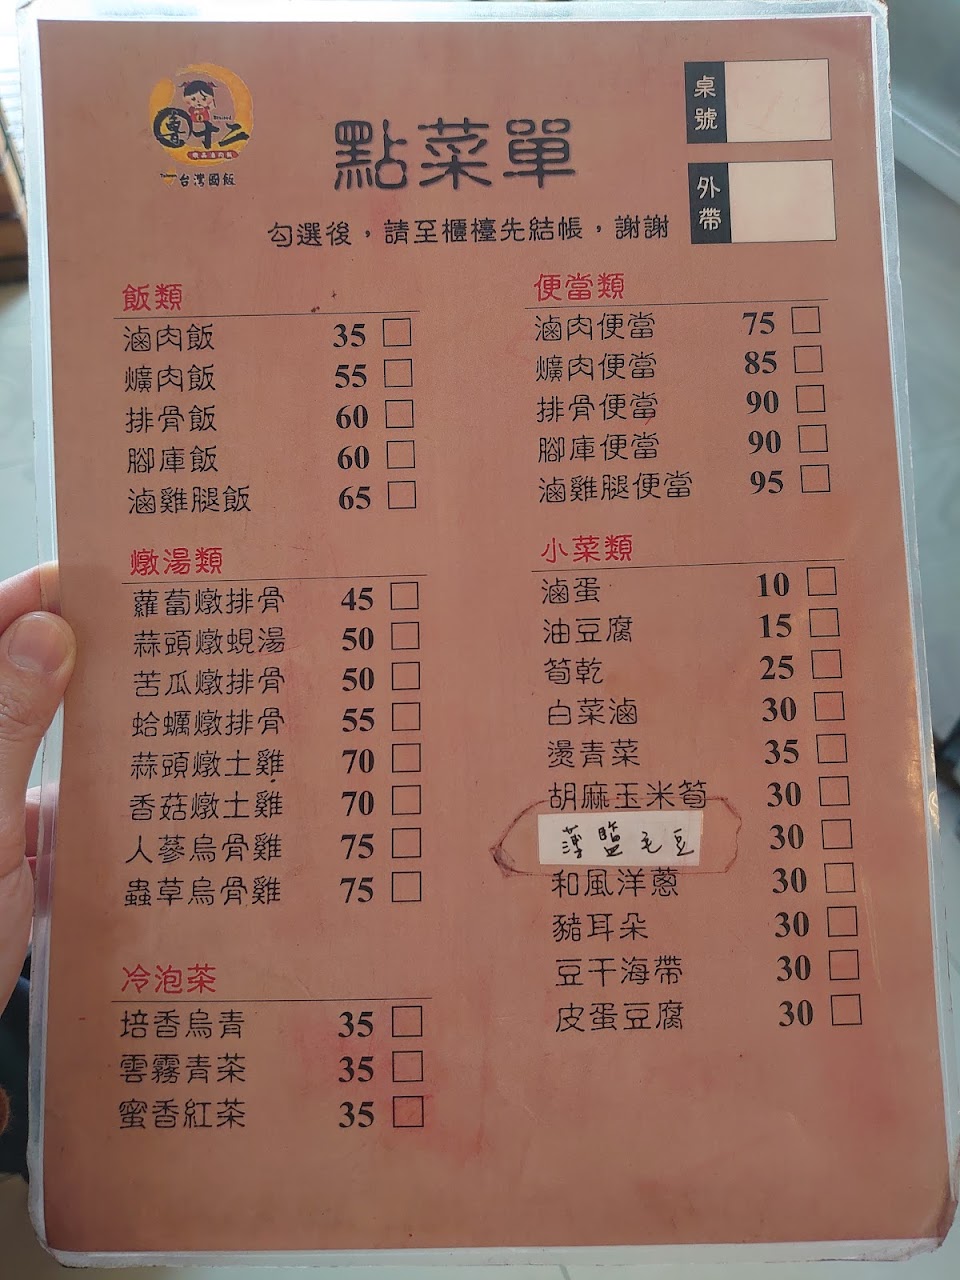 十二
台灣國飯
點菜單
桌號
外帶
勾選後，請至櫃檯先結帳，謝謝
飯類
滷肉飯 35
爌肉飯 55
排骨飯 60
腳庫飯 60
滷雞腿飯 65
燉湯類
蘿蔔燉排骨 45
蒜頭燉蜆湯 50
苦瓜燉排骨 50
蛤蠣燉排骨 55
蒜頭燉土雞 70
香菇燉土雞 70
人蔘烏骨雞 75
蟲草烏骨雞 75
冷泡茶
培香烏青 35
雲霧青茶 35
蜜香紅茶 35
便當類
滷肉便當 75
爌肉便當 85
排骨便當 90
腳庫便當 90
滷雞腿便當 95
小菜類
滷蛋 10
油豆腐 15
筍乾 25
白菜滷 30
燙青菜 35
胡麻玉米筍 30
薄鹽毛豆 30
和風洋蔥 30
豬耳朵 30
豆干海帶 30
皮蛋豆腐 30